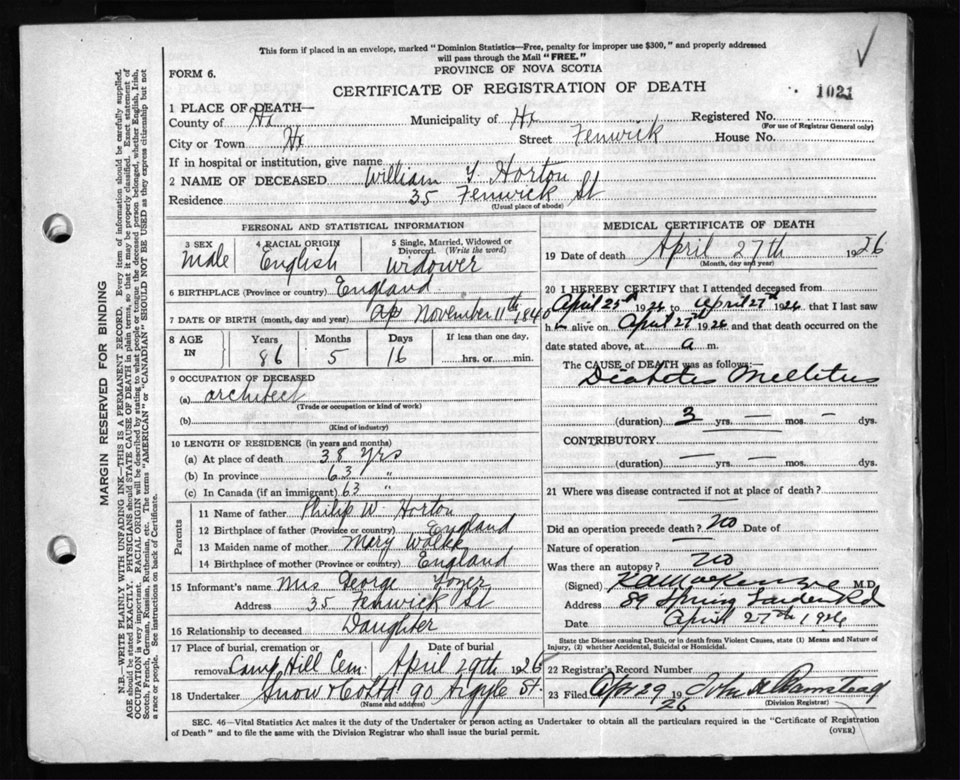 This form if placed in an envelope, marked "Dominion Statistics—Free, penalty for improper use $300," and properly addressed
will pass through the Mail "FREE."
FORM 6.
PROVINCE OF NOVA SCOTIA
CERTIFICATE OF REGISTRATION OF DEATH
1021
MARGIN RESERVED FOR BINDING
N.B.—WRITE PLAINLY WITH UNFADING INK—THIS IS A PERMANENT RECORD. Every item of information should be carefully supplied.
AGE should be stated EXACTLY. PHYSICIANS should STATE CAUSE OF DEATH in plain terms, so that it may be properly classified. Exact statement of
OCCUPATION is very important. RACIAL ORIGIN will be described by stating to what people or tongue the deceased person belonged, whether English, Irish,
Scotch, French, German, Russian, Ruthenian, etc. The terms "AMERICAN" or "CANADIAN" SHOULD NOT BE USED as they express citizenship but not
a race or people. See instructions on back of Certificate.
1 PLACE OF DEATH—
County of Hx Municipality of Hx Registered No.
(For use of Registrar General only)
City or Town Hx Street Fenwick House No.
If in hospital or institution, give name
2 NAME OF DECEASED William Y. Horton
Residence 35 Fenwick St
(Usual place of abode)
PERSONAL AND STATISTICAL INFORMATION
3 SEX Male
4 RACIAL ORIGIN English
5 Single, Married, Widowed or
Divorced. (Write the word)
Widower
6 BIRTHPLACE (Province or country) England
7 DATE OF BIRTH (month, day and year) November 11th 1840
8 AGE IN
Years 86 Months 5 Days 16
If less than one day,
hrs. or min.
9 OCCUPATION OF DECEASED
(a) architect
(Trade or occupation or kind of work)
(b)
(Kind of industry)
10 LENGTH OF RESIDENCE (in years and months)
(a) At place of death 38 yrs
(b) In province 63 "
(c) In Canada (if an immigrant) 63 "
Parents
11 Name of father Philip W. Horton
12 Birthplace of father (Province or country) England
13 Maiden name of mother Mary
14 Birthplace of mother (Province or country) England
15 Informant's name Mrs George
Address 35 Fenwick St
16 Relationship to deceased Daughter
17 Place of burial, cremation or
removal Camp Hill Cem.
Date of burial
April 29th 1926
18 Undertaker Snow & Co Ltd 90 Argyle St.
(Name and address)
MEDICAL CERTIFICATE OF DEATH
19 Date of death April 27th 1926
(Month, day and year)
20 I HEREBY CERTIFY that I attended deceased from
April 25th 1926 to April 27th 1926 that I last saw
h alive on April 27th 1926 and that death occurred on the
date stated above, at a m.
The CAUSE OF DEATH was as follows:
Diabetes Mellitus
(duration) 3 yrs. — mos. — dys.
CONTRIBUTORY
(duration) — yrs. — mos. — dys.
21 Where was disease contracted if not at place of death?
Did an operation precede death? no Date of
Nature of operation
Was there an autopsy? no
(Signed) K A MacKenzie M.D.
Address 89 Spring Garden Rd
Date April 27th 1926
State the Disease causing Death, or in death from Violent Causes, state (1) Means and Nature of
Injury, (2) whether Accidental, Suicidal or Homicidal.
22 Registrar's Record Number
23 Filed Apr 29 1926 John A
(Division Registrar)
SEC. 46—Vital Statistics Act makes it the duty of the Undertaker or person acting as Undertaker to obtain all the particulars required in the "Certificate of Registration
of Death" and to file the same with the Division Registrar who shall issue the burial permit.
(OVER)